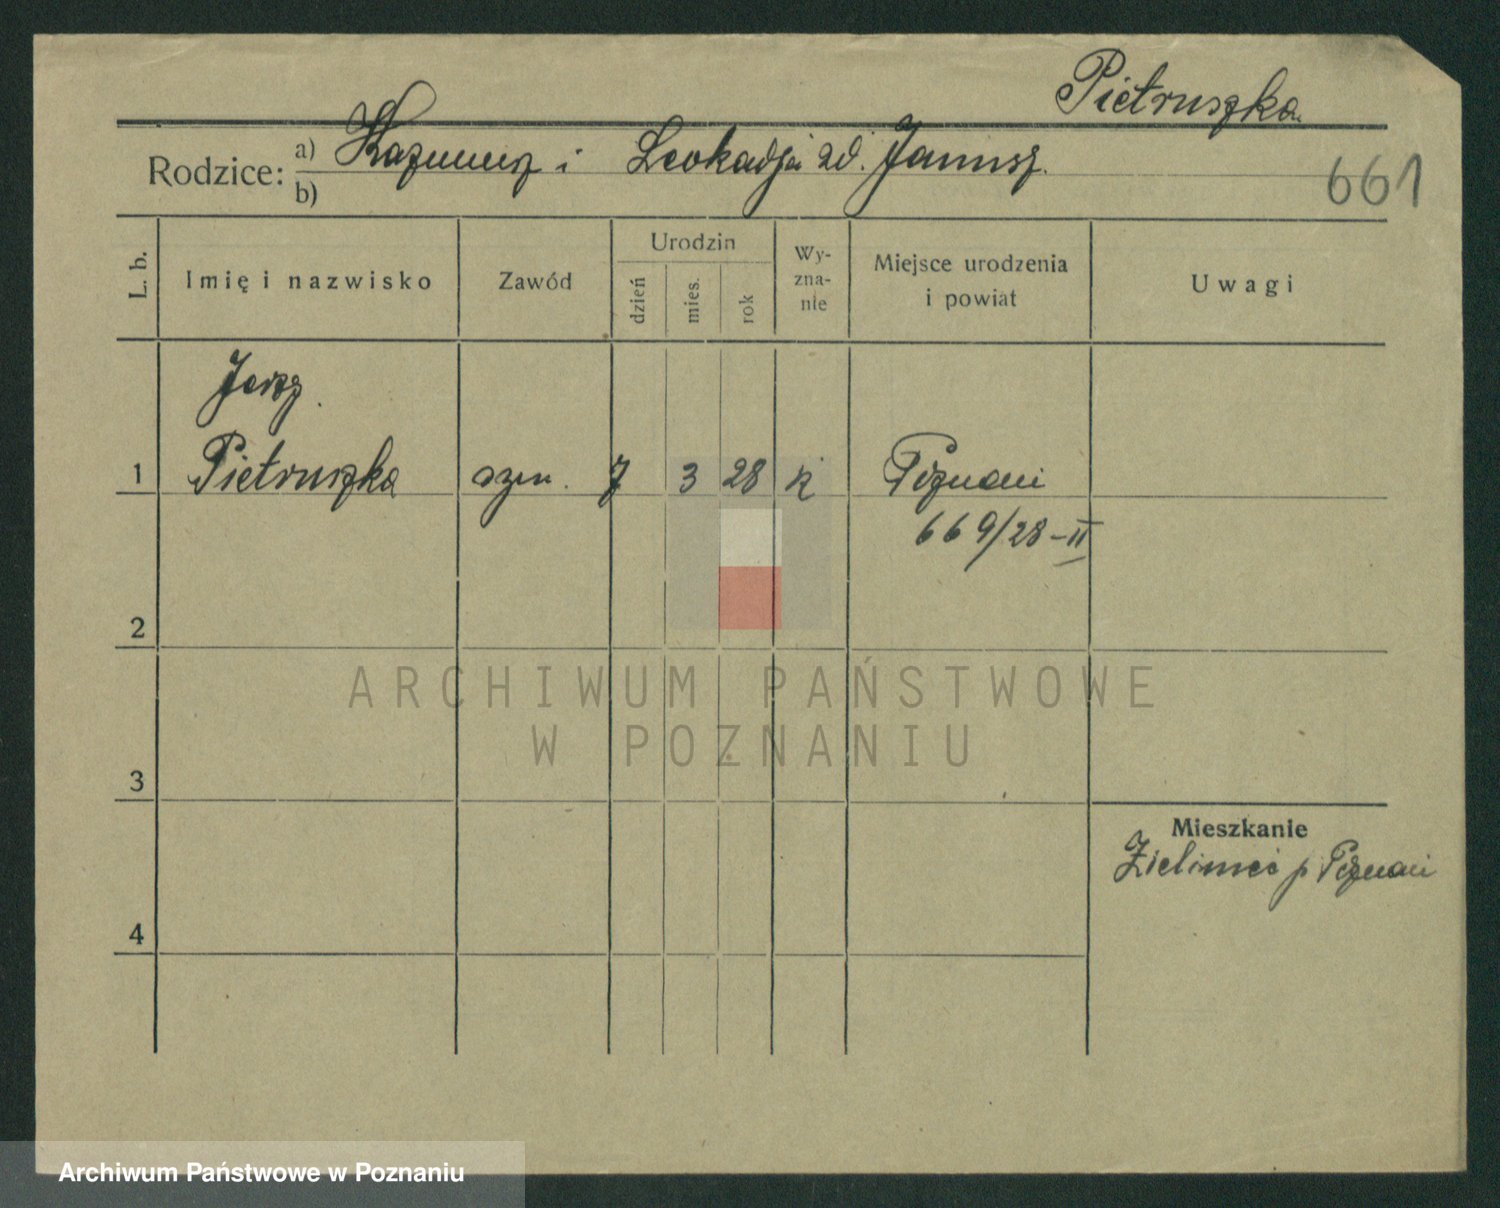 Pietruszka
661
Rodzice: a) Kazimierz i Leokadja zd. Janusz.
b)
L. b. Imię i nazwisko Zawód Urodzin dzień mies. rok Wy-zna-nie Miejsce urodzenia i powiat Uwagi
Jerzy
1 Pietruszka 7 3 28 k Poznań
669/28-II
2
ARCHIWUM PAŃSTWOWE
W POZNANIU
3
Mieszkanie
p Poznań
4
Archiwum Państwowe w Poznaniu